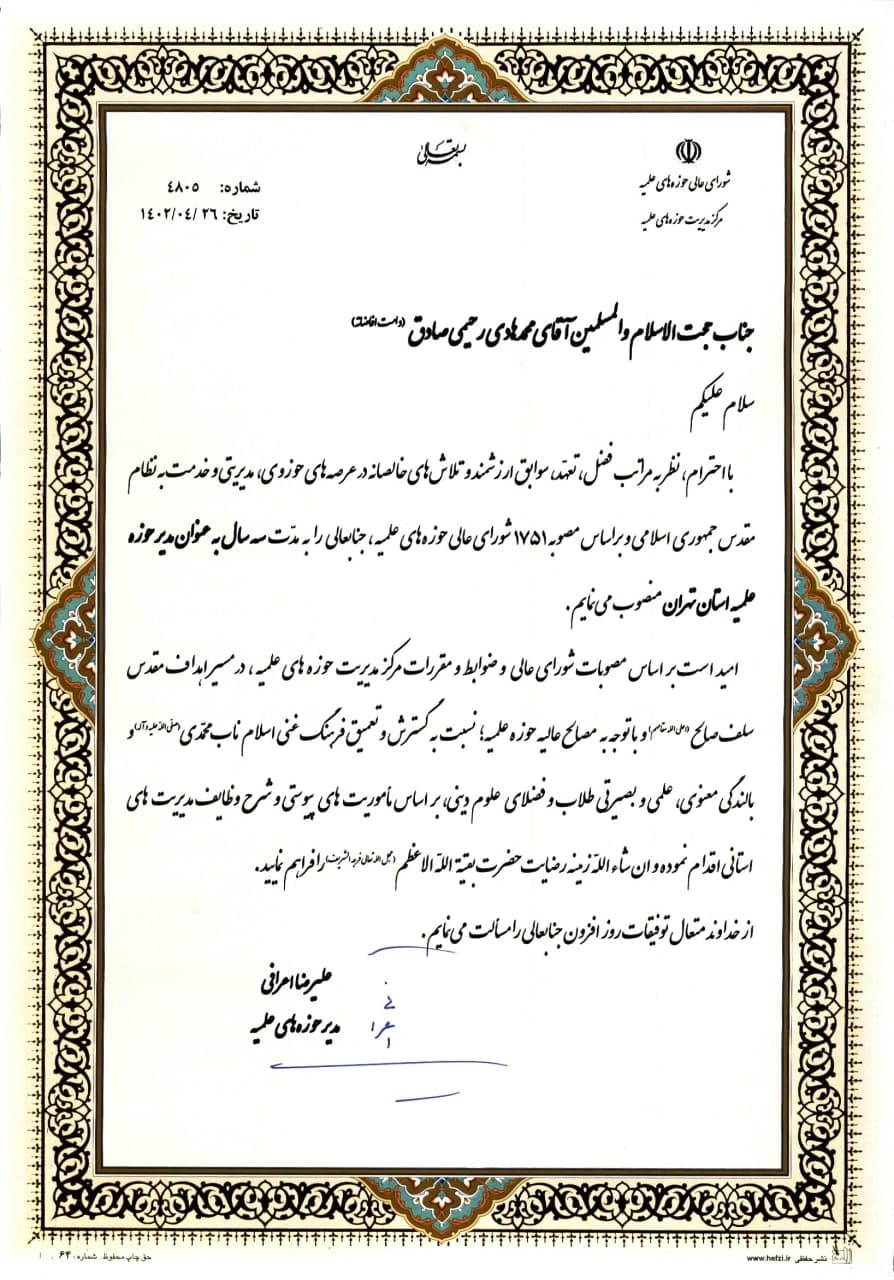 بسمه تعالی
شورای عالی حوزه های علمیه
مرکز مدیریت حوزه های علمیه
شماره: ٤٨٠٥
تاریخ: ١٤٠٢/٠٤/٢٦
جناب حجت الاسلام والمسلمین آقای محمدهادی رحیمی صادق (دامت افاضاته)
سلام علیکم
با احترام، نظر به مراتب فضل، تعهد، سوابق ارزشمند و تلاش های خالصانه در عرصه های حوزوی، مدیریتی و خدمت به نظام
مقدس جمهوری اسلامی و براساس مصوبه ۱۷۵۱ شورای عالی حوزه های علمیه، جنابعالی را به مدّت سه سال به عنوان مدیر حوزه
علمیه استان تهران منصوب می نمایم.
امید است بر اساس مصوبات شورای عالی و ضوابط و مقررات مرکز مدیریت حوزه های علمیه، در مسیر اهداف مقدس
سلف صالح (اعلی الله مقامهم) و با توجه به مصالح عالیه حوزه علمیه؛ نسبت به گسترش و تعمیق فرهنگ غنی اسلام ناب محمّدی (صلی الله علیه و آله) و
بالندگی معنوی، علمی و بصیرتی طلاب و فضلای علوم دینی، بر اساس مأموریت های پیوستی و شرح وظایف مدیریت های
استانی اقدام نموده و ان شاء الله زمینه رضایت حضرت بقیة الله الاعظم (عجل الله تعالی فرجه الشریف) را فراهم نمایید.
از خداوند متعال توفیقات روز افزون جنابعالی را مسألت می نمایم.
علیرضا اعرافی
مدیر حوزه های علمیه
نشر حفظی www.hefzi.ir
حق چاپ محفوظ. شماره: ۶۴۰